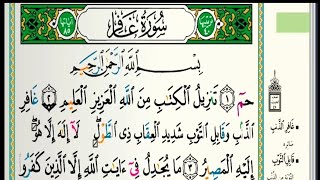 سُورَةُ غَافِرٍ
بِسْمِ اللَّهِ الرَّحْمَٰنِ الرَّحِيمِ
حمٓ ١ تَنزِيلُ الْكِتَٰبِ مِنَ اللَّهِ الْعَزِيزِ الْعَلِيمِ ٢ غَافِرِ
الذَّنۢبِ وَقَابِلِ التَّوْبِ شَدِيدِ الْعِقَابِ ذِى الطَّوْلِ لَآ إِلَٰهَ إِلَّا هُوَ
إِلَيْهِ الْمَصِيرُ ٣ مَا يُجَٰدِلُ فِىٓ ءَايَٰتِ اللَّهِ إِلَّا الَّذِينَ كَفَرُوا
غَافِرِ الذَّنْبِ
قَابِلِ التَّوْبِ